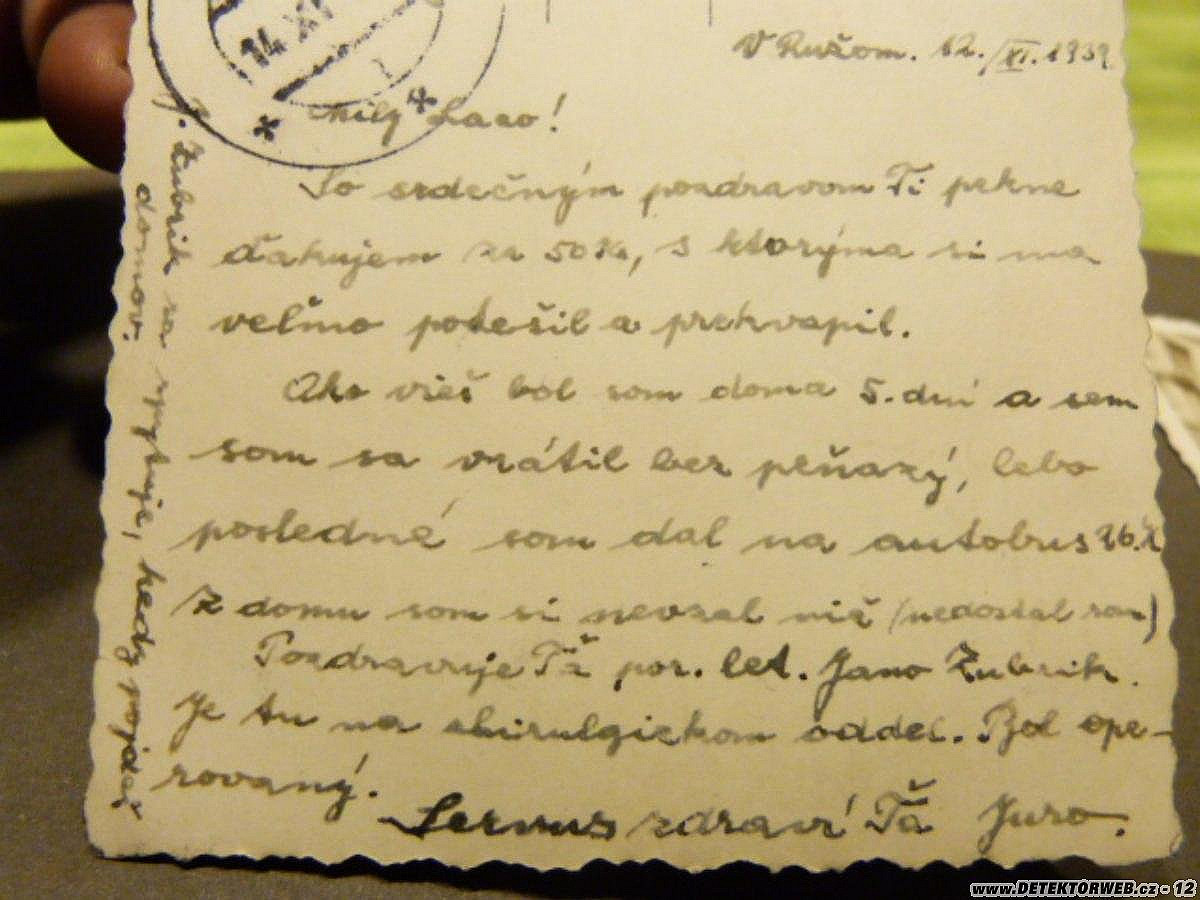 14 XI
V Ružom. 12./XI. 1939
Milý Laco!
So srdečným pozdravom Ti pekne
ďakujem za 50 Ks, s ktorýma si ma
veľmo potešil a prekvapil.
Ako vieš bol som doma 5. dní a sem
som sa vrátil bez peňazý, lebo
posledné som dal na autobus 26.X
Z domu som si nevzal nič (nedostal som)
Pozdravuje Ťa por. let. Jano Zubrik.
Je tu na chirulgickom oddel. Bol ope-
rovaný.
Servus zdraví Ťa Juro.
J. Zubrik sa spytuje, kedy pojdeš
domov.
www.DETEKTORWEB.cz - 12